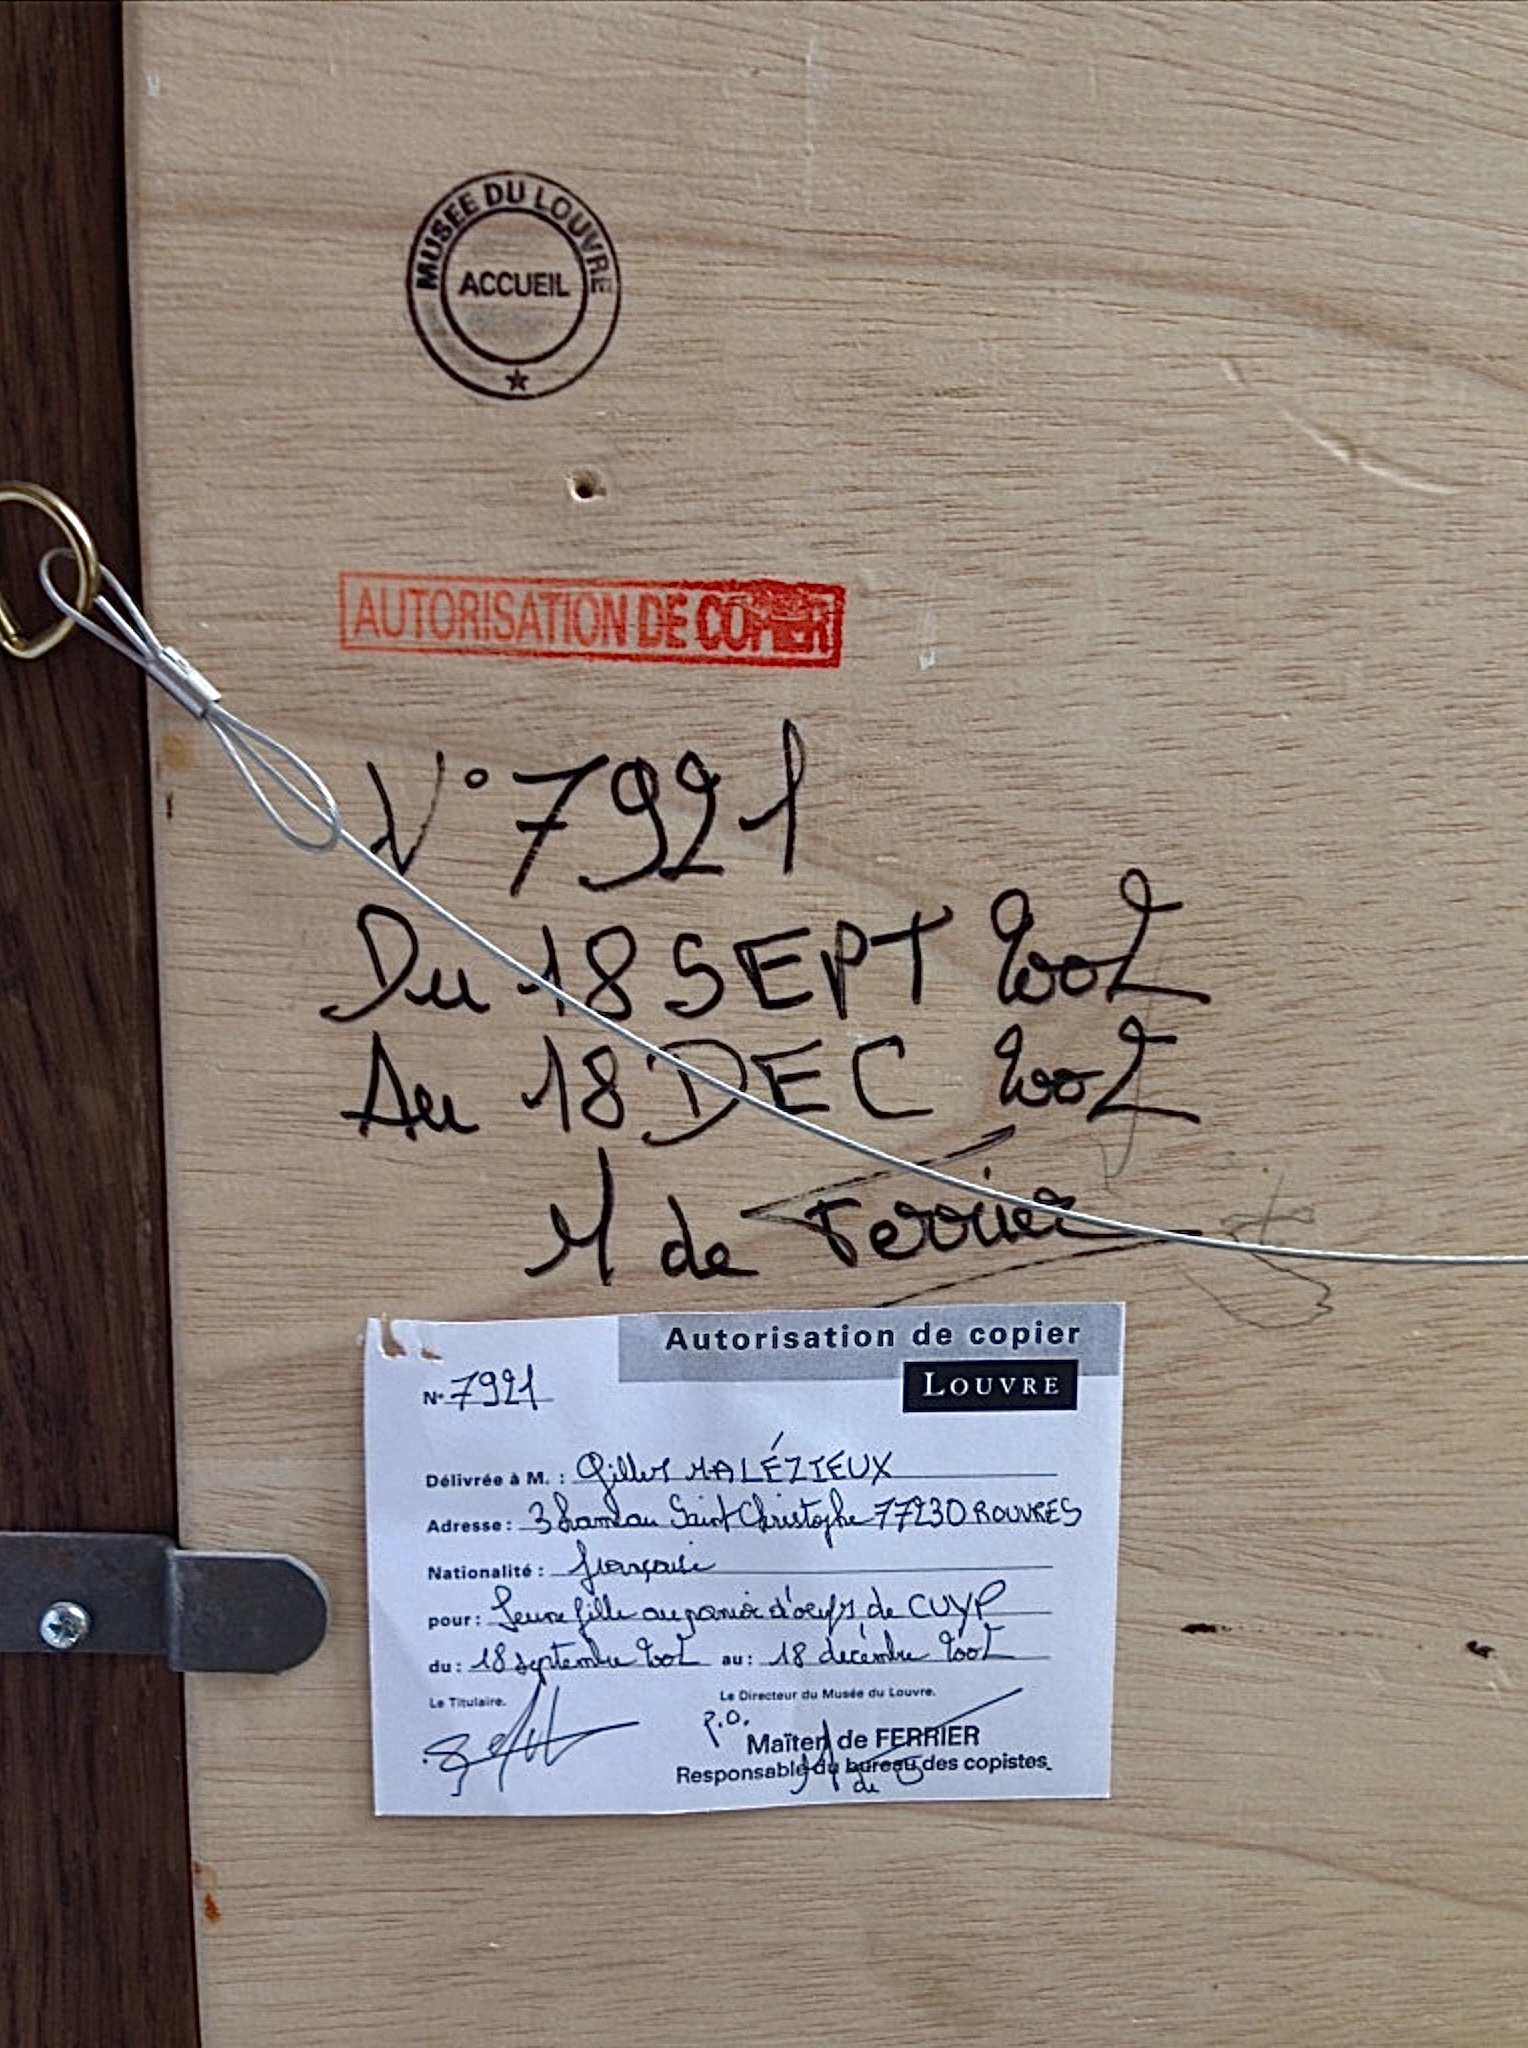 MUSEE DU LOUVRE
ACCUEIL
AUTORISATION DE COPIER
N° 7921
Du 18 SEPT 2002
Au 18 DEC 2002
M de Ferrier
Autorisation de copier
LOUVRE
N° 7921
Délivrée à M. : Gilles MALÉZIEUX
Adresse : 3 hameau Saint Christophe 77230 ROUVRES
Nationalité : française
pour : Jeune fille au panier d'oeufs de CUYP
du : 18 septembre 2002 au : 18 décembre 2002
Le Titulaire. Le Directeur du Musée du Louvre.
P.O.
Maïten de FERRIER
Responsable du bureau des copistes.